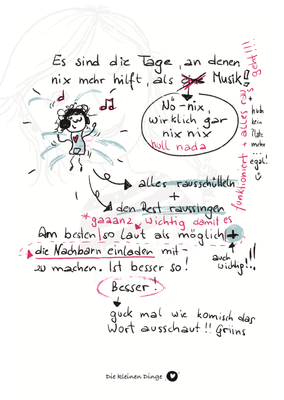 Es sind die Tage, an denen
nix mehr hilft, als eine Musik!!
Nö-nix,
wirklich gar
nix nix
null nada
alles rausschütteln
+
den Rest raussingen
*gaaanz wichtig damit es
funktioniert + alles raus geht!!!
+ hab
kein
mehr
... egal!
Am besten so laut als möglich +
auch
wichtig!!!
die Nachbarn einladen mit-
zu machen. Ist besser so!
Besser!
guck mal wie komisch das
Wort ausschaut!! Griins
Die kleinen Dinge